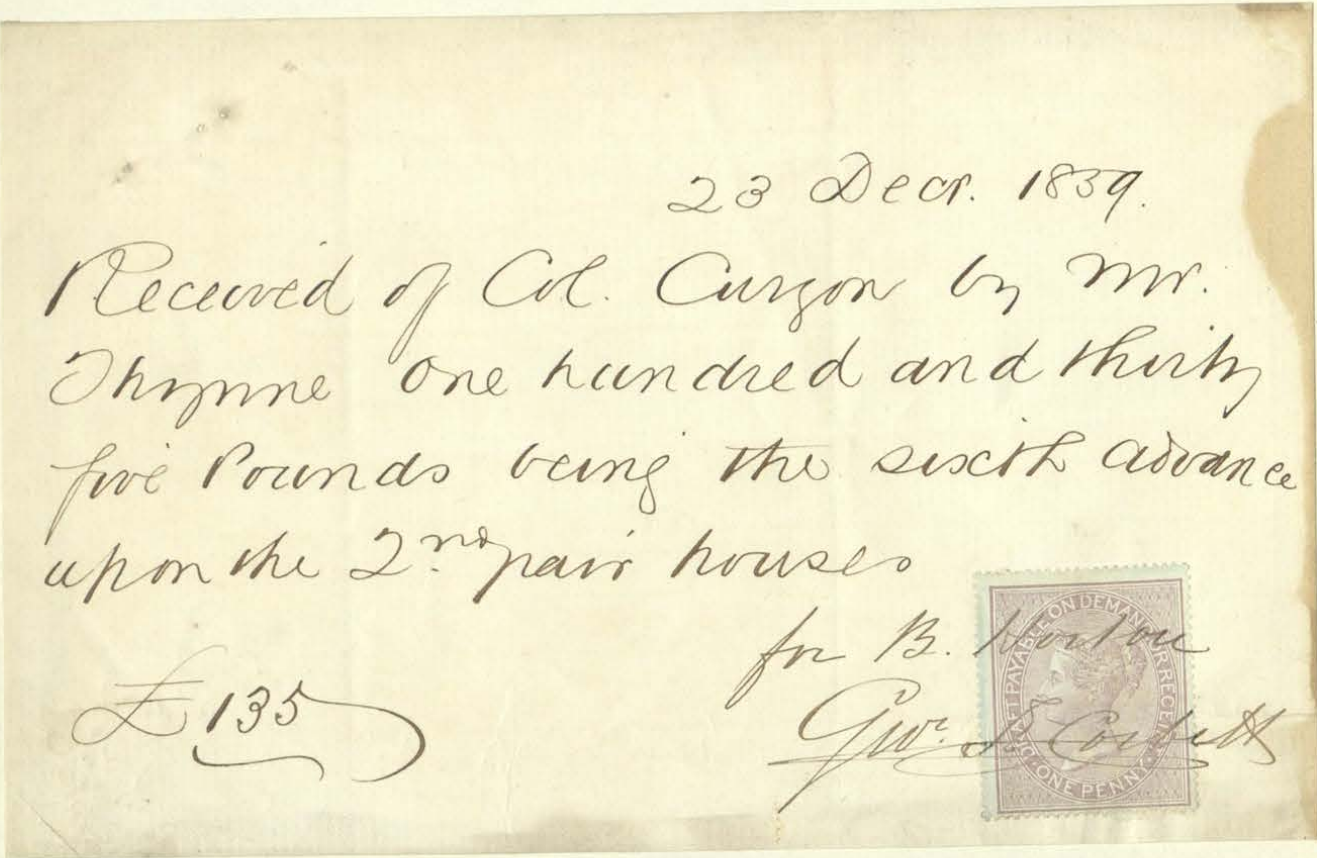 23 Decr. 1859.
Received of Col. Curzon by Mr.
Thynne One hundred and thirty
five Pounds being the sixth advance
upon the 2nd. pair houses
for B. Horton
£135
Geo. S. Corbett
DRAFT PAYABLE ON DEMAND OR RECEIPT
ONE PENNY